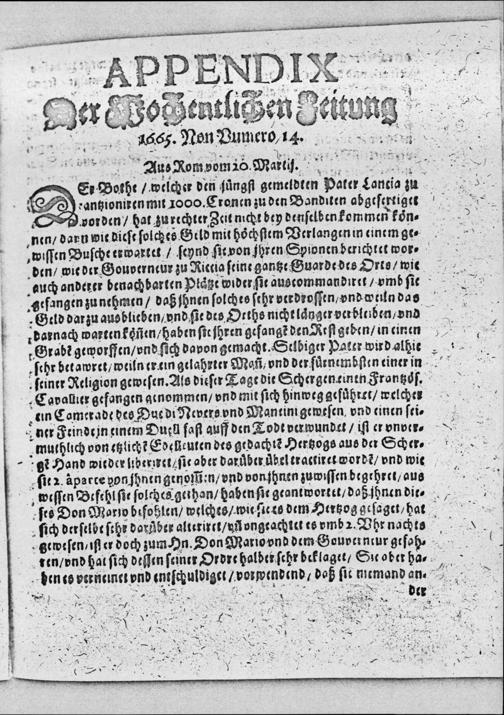 APPENDIX
Der Wochentlichen Zeitung
1665. Non Vumero, 14.
Aus Rom vom 20. Martij.
DEr Bothe / welcher den jüngst gemeldten Pater Lancia zu
rantzioniren mit 1000. Cronen zu den Banditen abgefertiget
worden / hat zu rechter Zeit nicht bey denselben kommen kön-
nen / dann wie diese solches Geld mit höchstem Verlangen in einem ge-
wissen Busche erwartet / seynd sie von jhren Spionen berichtet wor-
den / wie der Gouverneur zu Riccia seine gantze Guarde des Orts / wie
auch anderer benachbarten Plätze wider sie auscommandiret / vmb sie
gefangen zu nehmen / daß jhnen solches sehr verdrossen / vnd weiln das
Geld darzu ausblieben / vnd sie des Orths nicht länger verbleiben / vnd
darnach warten köñen / haben sie jhren gefangē den Rest geben / in einen
Grabē geworffen / vnd sich davon gemacht. Selbiger Pater wird alhie
sehr betawret / weiln er ein gelährter Mañ / vnd der fürnembsten einer in
seiner Religion gewesen. Als dieser Tage die Schergen einen Frantzös.
Cavallier gefangen genommen / vnd mit sich hinweg geführet / welcher
ein Camerade des Duc di Nevers vnd Mancini gewesen / vnd einen sei-
ner Feinde in einem Duell fast auff den Todt verwundet / ist er vnver-
muthlich von etzlichē Edelleuten des gedachtē Hertzogs aus der Scher-
gē Hand wieder liberiret / sie aber darüber übel tractiret wordē / vnd wie
sie 2. à parte von jhnen genom̃en / vnd von jhnen zu wissen begehret / aus
wessen Befehl sie solches gethan / haben sie geantwortet / daß jhnen die-
ses Don Mario befohlen / welches / wie sie es dem Hertzog gesaget / hat
sich derselbe sehr darüber alteriret / vñ ongeachtet es vmb 2. Vhr nachts
gewesen / ist er doch zum Hn. Don Mario vnd dem Gouverneur gefah-
ren / vnd hat sich dessen seiner Ordre halber sehr beklaget / Sie aber ha-
ben es verneinet vnd entschuldiget / vorwendend / daß sie niemand an-
der